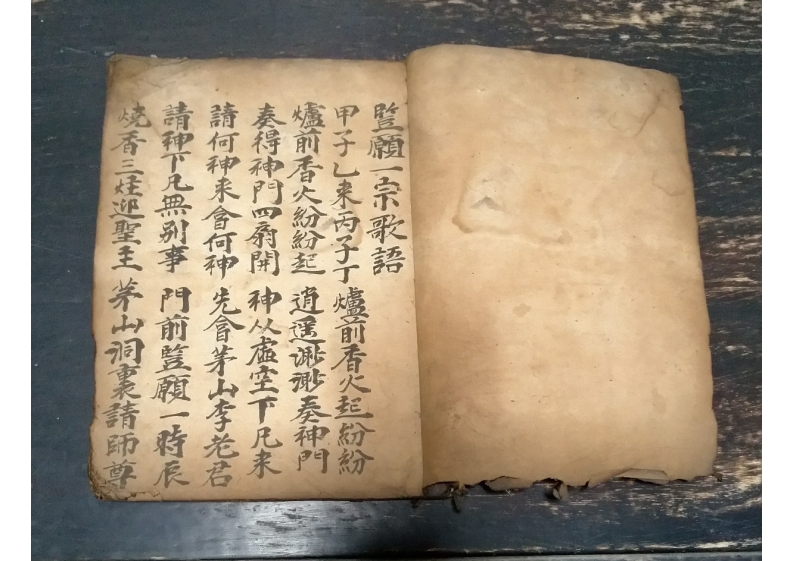 豎願一宗歌語
甲子乙来丙子丁 爐前香火起紛紛
爐前香火紛紛起 逍遥渺渺奏神門
奏得神門四扇開 神从虛空下凡来
請何神来會何神 先會茅山李老君
請神下凡無别事 門前豎願一時辰
燒香三炷迎聖王 茅山洞裏請師尊